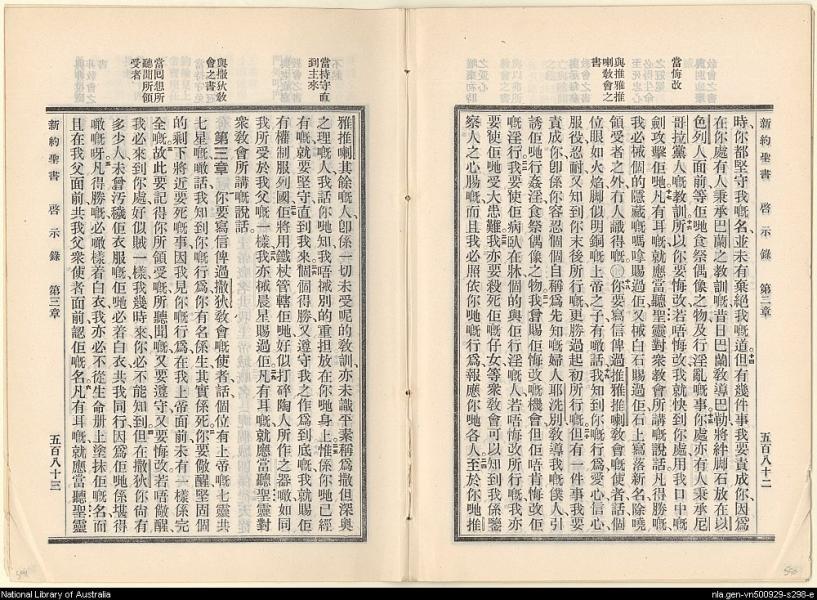 當悔改
與推雅推
喇敎會之
書
新約聖書 啓示錄 第二章 五百八十二
時你都堅守我嘅名並未有棄絕我嘅道但有幾件事我要責成你因爲
在你處有人秉承巴蘭之教訓嘅昔日巴蘭敎導巴勒將絆脚石放在以
色列人面前等佢哋食祭偶像之物及行淫亂嘅事你處亦有人秉承尼
哥拉黨人嘅教訓所以你要悔改若唔悔改我就快到你處用我口中嘅
劍攻擊佢哋凡有耳嘅就應當聽聖靈對衆敎會所講嘅說話凡得勝嘅
我必
領受者之外有人識得嘅〇你要寫信俾過推雅推喇敎會嘅使者話個
位眼如火焰脚似明銅嘅上帝之子有噉話我知到你嘅行爲愛心信心
服役忍耐又知到你末後所行嘅更勝過起初所行嘅但有一件事我要
責成你卽係你容忍個個自稱爲先知嘅婦人耶洗別敎導我嘅僕人引
誘佢哋行姦淫食祭偶像之物我曾賜佢悔改嘅機會但佢唔肯悔改佢
嘅淫行我要使佢病臥在牀個的與佢行淫嘅人若唔悔改所行嘅我亦
要使佢哋受大患難我亦要殺死佢嘅仔女等衆敎會可以知到我係鑒
察人之心腸嘅而且我必照依你哋嘅行爲報應你哋各人至於你哋推
當持守直
到主來
與撒狄敎
會之書
當囘想所
聽聞所領
受者
雅推喇其餘嘅人卽係一切未受呢的敎訓亦未識平素稱爲撒但深奧
之理嘅人我話你哋知我唔搣別的重担放在你哋身上惟係你哋已經
有嘅就要堅守直到我來個個得勝又遵守我之作爲到底嘅我就賜佢
有權制服列國佢將用鐵杖管轄佢哋好似打碎陶人所作之器噉如同
我所受於我父嘅一樣我亦搣晨星賜過佢凡有耳嘅就應當聽聖靈對
衆敎會所講嘅說話
第三章 你要寫信俾過撒狄敎會嘅使者話個位有上帝嘅七靈共
七星嘅噉話我知到你嘅行爲你有名係生其實係死你要儆醒堅固個
的剩下將近要死嘅事因我見你嘅行爲在我上帝面前未有一樣係完
全嘅故此要記得你所領受嘅所聽聞嘅又要遵守又要悔改若唔儆醒
我必來到你處好似賊一樣我幾時來你必不能知到但在撒狄你尙有
多少人未曾汚穢佢衣服嘅佢哋必着白衣共我同行因爲佢哋係堪得
噉嘅呀凡得勝嘅必噉樣着白衣我亦必不從生命册上塗抹佢嘅名而
且在我父面前共我父衆使者面前認佢嘅名凡有耳嘅就應當聽聖靈
新約聖書 啓示錄 第三章 五百八十三
National Library of Australia
nla.gen-vn500929-s298-e